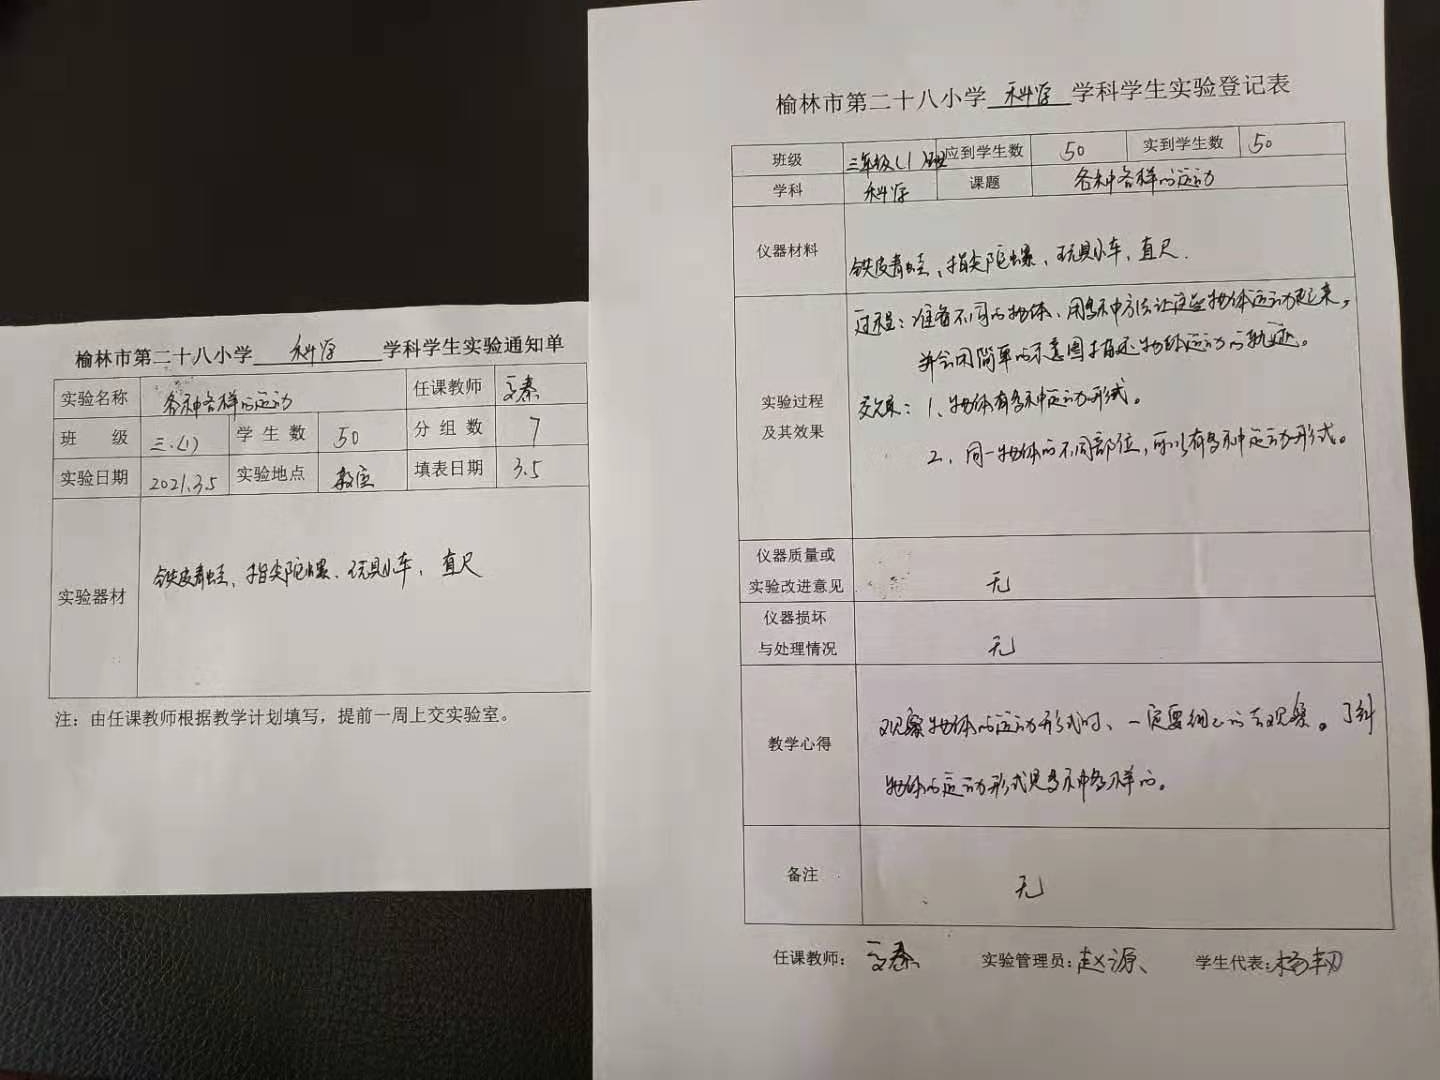 榆林市第二十八小学 科学 学科学生实验通知单
实验名称 各种各样的运动 任课教师
班 级 三.(1) 学生数 50 分组数 7
实验日期 2021.3.5 实验地点 教室 填表日期 3.5
实验器材 铁皮青蛙、指尖陀螺、玩具小车、直尺
注：由任课教师根据教学计划填写，提前一周上交实验室。
榆林市第二十八小学 科学 学科学生实验登记表
班级 三年级(1)班 应到学生数 50 实到学生数 50
学科 科学 课题 各种各样的运动
仪器材料 铁皮青蛙、指尖陀螺、玩具小车、直尺.
实验过程
及其效果
过程：准备不同的物体、用多种方法让这些物体运动起来，
并会用简单的示意图描述物体运动的轨迹。
效果：1、物体有多种运动形式。
2、同一物体的不同部位，可以有多种运动形式。
仪器质量或
实验改进意见 无
仪器损坏
与处理情况 无
教学心得
观察物体的运动形式时、一定要细心的去观察。了解
物体的运动形式是多种多样的。
备注 无
任课教师： 实验管理员：赵源 学生代表：杨韧